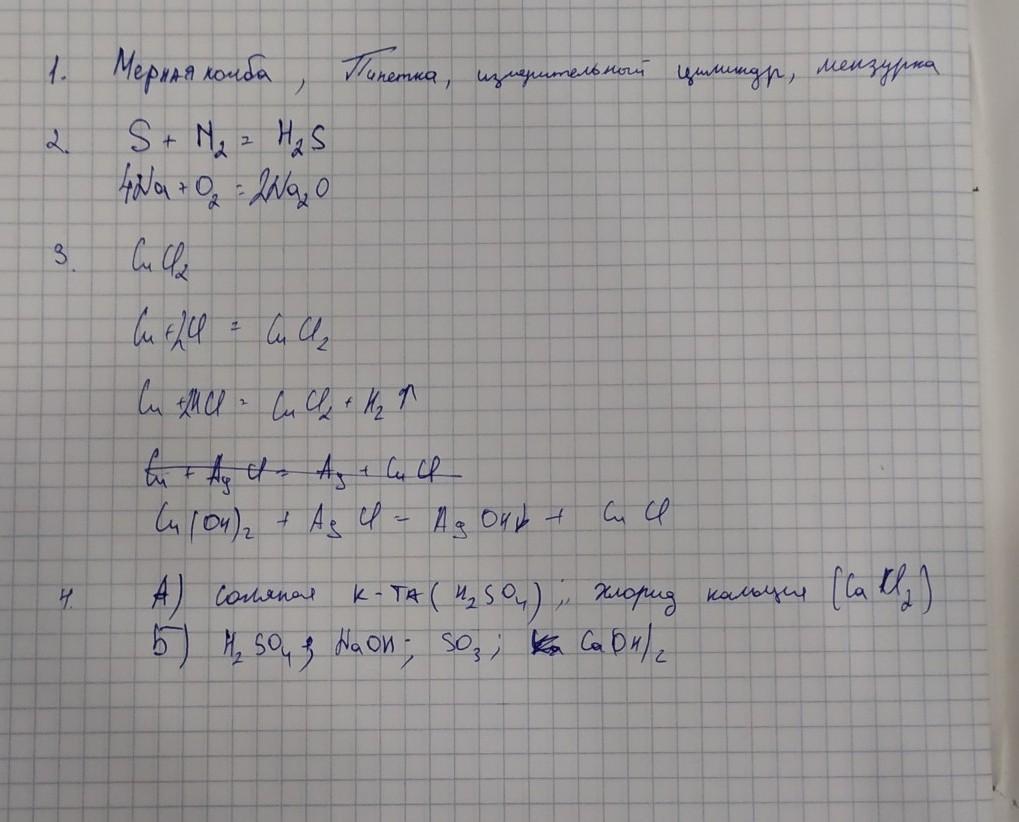 1. Мерная колба, Пипетка, измерительный цилиндр, мензурка
2. S + H₂ = H₂S
4Na + O₂ = 2Na₂O
3. CuCl₂
Cu + 2Cl = CuCl₂
Cu + 2HCl = CuCl₂ + H₂ ↑
Cu + AgCl = Ag + CuCl
Cu(OH)₂ + AgCl = AgOH↓ + CuCl
4. А) соляная к-та (H₂SO₄); хлорид кальция (CaCl₂)
Б) H₂SO₄; NaOH; SO₃; Ca(OH)₂